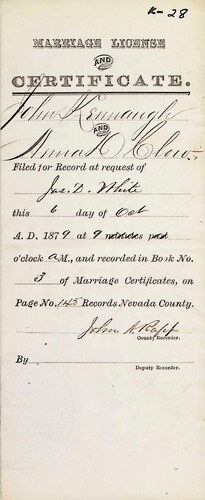 K-28
MARRIAGE LICENSE
AND
CERTIFICATE.
John Kennaugh
AND
Anna
Filed for Record at request of
Jas. D. White
this 6 day of Oct
A. D. 1879 at 9 minutes past
o'clock A M., and recorded in Book No.
3 of Marriage Certificates, on
Page No. 145 Records Nevada County.
John N. Rapp
County Recorder.
By
Deputy Recorder.